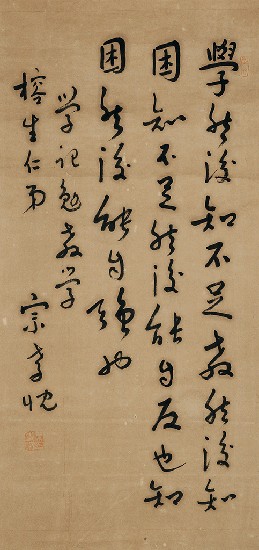 學然後知不足教然後知
困知不足然後能自反也知
困然後能自強也
学記勉教学
榕生仁弟
宗孝忱